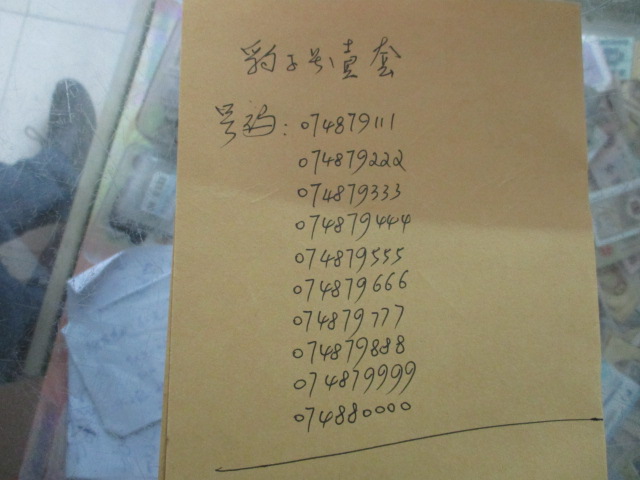 豹子号壹套
号码:074879111
074879222
074879333
074879444
074879555
074879666
074879777
074879888
074879999
074880000